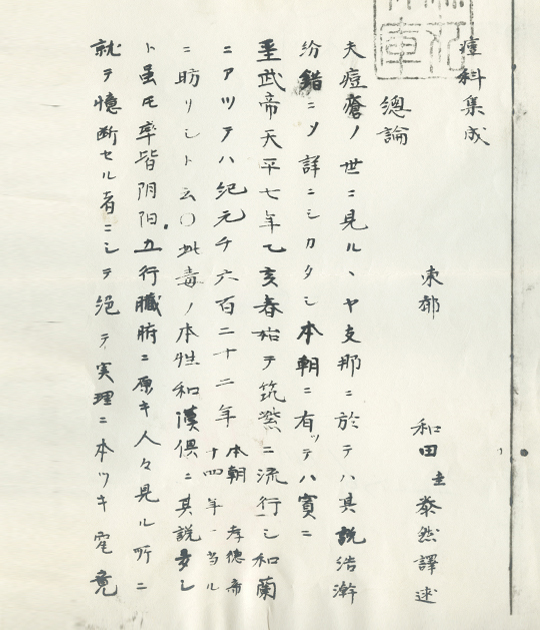 痘科集成
東都 和田 圭 泰然譯述
總論
夫痘瘡ノ世ニ見ル丶ヤ支那ニ於テハ其説浩瀚
紛錯ニメ詳ニシカタシ本朝ニ有ツテハ實ニ
聖武帝天平七年乙亥春始テ筑紫ニ流行シ和蘭
ニアツテハ紀元千六百二十二年
本朝 孝德帝
十四年 当ル
ニ昉リシト云〇此毒ノ本性和漢俱ニ其説多シ
ト虽モ率皆阴阳五行臓腑ニ原キ人々見ル所ニ
就テ憶断セル者ニシテ絶テ実理ニ本ツキ 竟